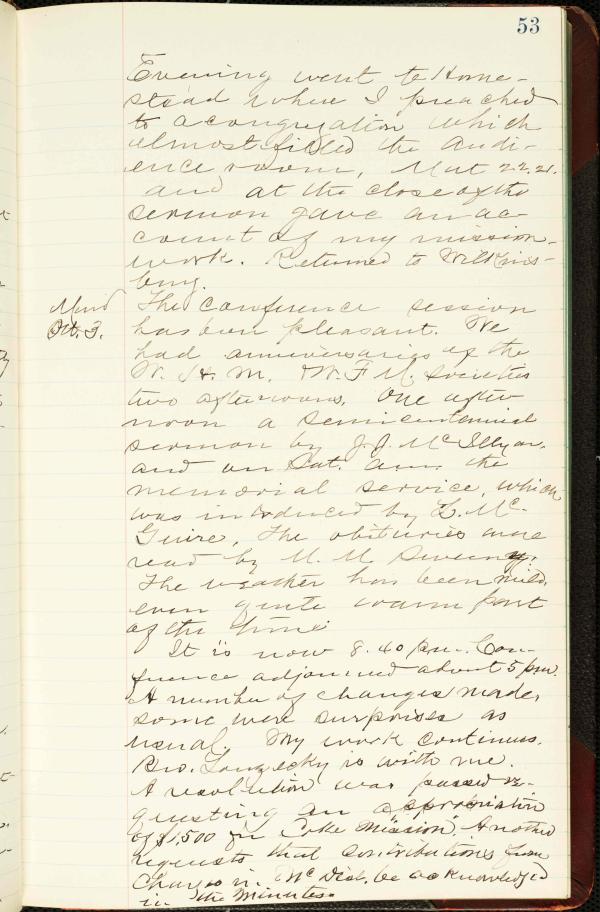 53
Evening went to Home-
stead where I preached
to a congregation which
almost filled the Audi-
ence room, Matt 22.21.
and at the close of the
sermon gave an ac-
count of my mission
work. Returned to Wilkins-
burg.
Mond
Oct. 3.
The Conference session
has been pleasant. We
had anniversaries of the
W. H. M. & W. F. M. Societies
two afternoons. One after
noon a semicentennial
sermon by J. J. McIlyar,
and on Sat. a.m. the
memorial service, which
was introduced by L. Mc-
Guire. The obituaries were
read by M. M. Sweeny.
The weather has been mild,
even quite warm part
of the time.
It is now 8.40 p.m. Con-
ference adjourned about 5 p.m.
A number of changes made,
some were surprises as
usual. My work continues.
Bro. is with me.
A resolution was passed re-
questing an appropriation
of $1,500 for Coke Mission. Another
requests that contributions from
Charges in McDist. be acknowledged
in the Minutes.